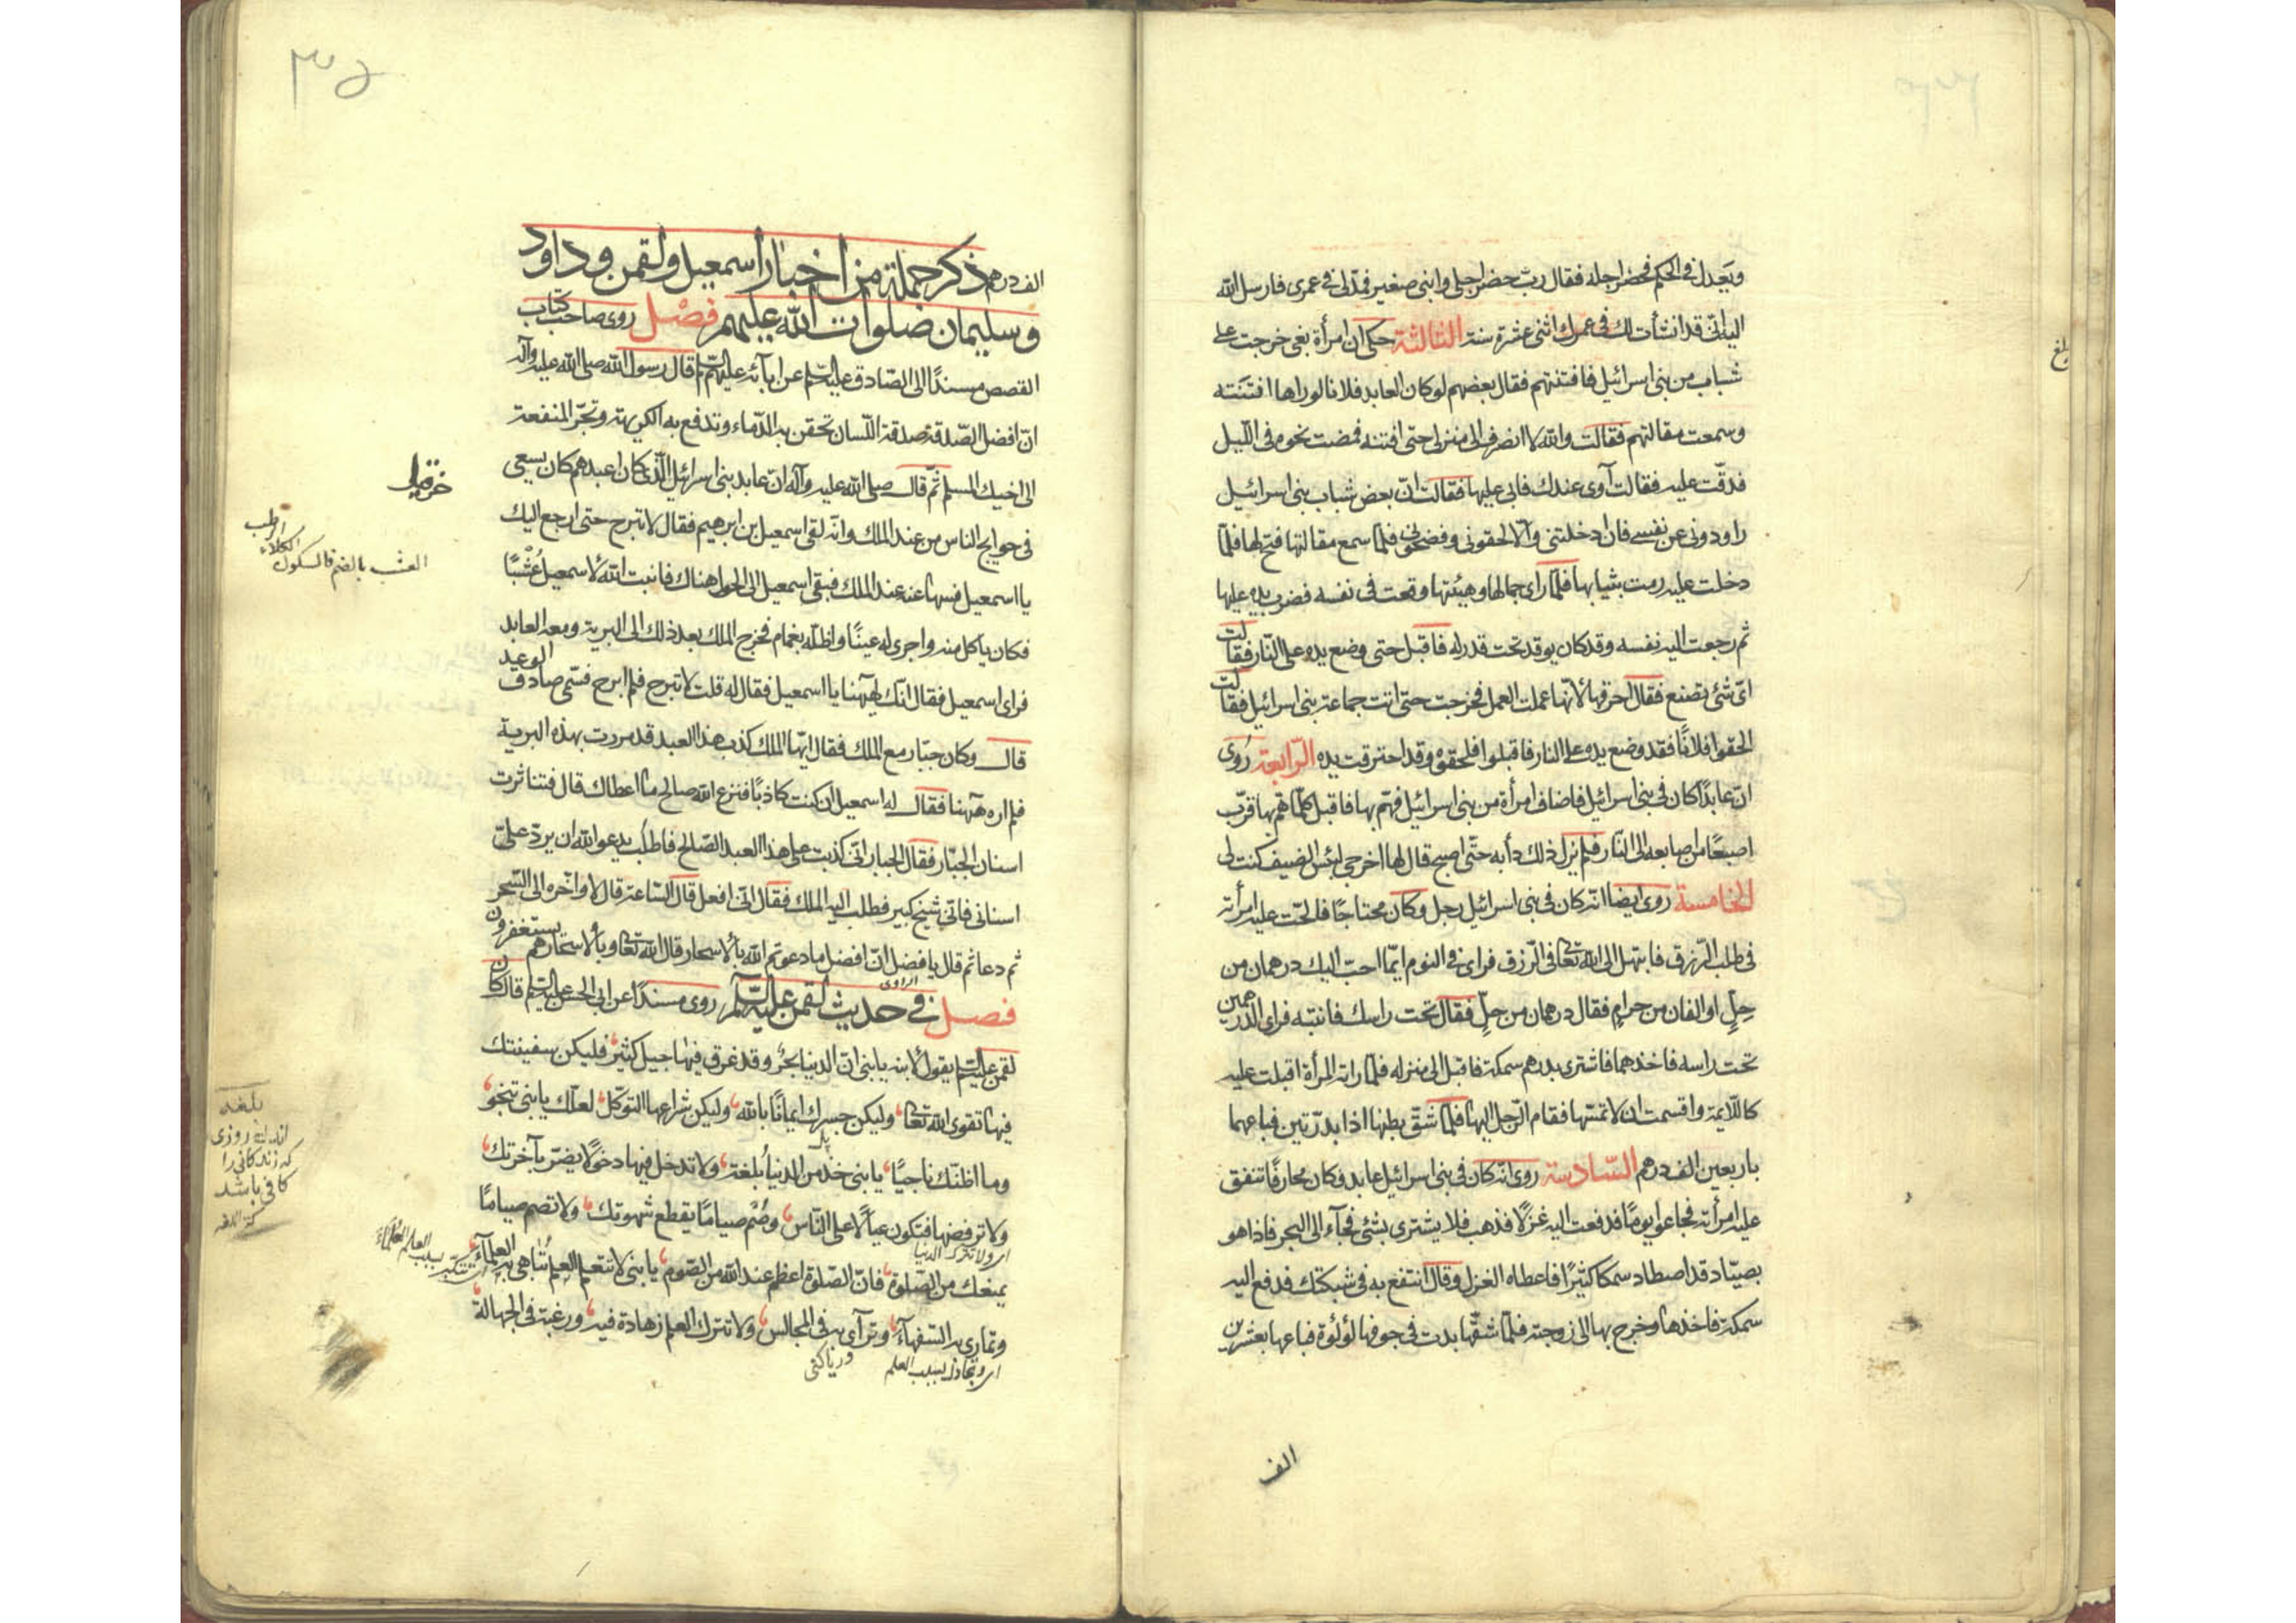 ويعدل في الحكم فحضر اجله فقال رب حضر اجلي وابني صغير فمدّ لي في عمري فارسل الله
اليه انّي قد انشأت لك في عمرك اثنى عشرة سنة الثالثة حكى ان امرأة بغى خرجت على
شباب من بنى اسرائيل فافتنتهم فقال بعضهم لو كان العابد فلانا لو راها افتَنَته
وسمعت مقالتهم فقالت والله لا انصرف الى منزلى حتى افتنه فمضت نحوه فى اللّيل
فدقّت عليه فقالت آوى عندك فابى عليها فقالت انّ بعض شباب بنى اسرائيل
راودونى عن نفسى فان ادخلتنى والّا لحقونى وفضحونى فلمّا سمع مقالتها فتح لها فلمّا
دخلت عليه رمت بثيابها فلمّا راى جمالها وهيئتها وقعت فى نفسه فضرب يده عليها
ثم رجعت اليه نفسه وقد كان يوقد تحت قدر له فاقبل حتى وضع يده على النّار فقالت
اىّ شئ تصنع فقال احرقها لانّها عملت العمل فخرجت حتى اتت جماعة بنى اسرائيل فقالت
الحقوا فلانًا فقد وضع يده على النار فاقبلوا فلحقوه وقد احترقت يده الرّابعة رُوى
انّ عابدًا كان فى بنى اسرائيل فاضاف امرأة من بنى اسرائيل فهمّ بها فاقبل كلّما همّ بها قرّب
اصبعًا من اصابعه الى النّار فلم يزل ذلك دأبه حتّى اصبح قال لها اخرجى لبئس الضيف كنت لى
الخامسة روى ايضا انّه كان فى بنى اسرائيل رجل وكان محتاجًا فالحّت عليه امرأته
فى طلب الرّزق فابتهل الى الله تعالى فى الرّزق فراى فى النوم ايّما احبّ اليك درهمان من
حِلّ او الفان من حرامٍ فقال درهمان من حلّ فقال تحت راسك فانتبه فراى الدّرهمين
تحت راسه فاخذهما فاشترى بدرهم سمكة فاقبل الى منزله فلمّا راته المرأة اقبلت عليه
كاللّايمة واقسمت ان لا تمسّها فقام الرّجل اليها فلمّا شقّ بطنها اذا بدرّتين فباعهما
باربعين الف درهم السّادسة روى انّه كان فى بنى اسرائيل عابد وكان محارفًا تنفق
عليه امرأته فجاعوا يومًا فدفعت اليه غزلًا فذهب فلا يشترى بشئ فجآء الى البحر فاذا هو
بصيّاد قد اصطاد سمكا كثيرًا فاعطاه الغزل وقال انتفع به فى شبكتك فدفع اليه
سمكة فاخذها وخرج بها الى زوجته فلمّا شقّها بدت فى جوفها لؤلؤة فباعها بعشرين
الف
٣٥
الف درهم ذكر جملة من اخبار اسمعيل ولقمن وداود
وسليمان صلوات الله عليهم فصْل روى صاحب كتاب
القصص مسندًا الى الصّادق عليه السّلم عن ابآئه عليهم السّلم قال رسول الله صلى الله عليه وآله
انّ افضل الصّدقة صدقة اللّسان تحقن به الدّماء وتدفع به الكريهة وتجرّ المنفعة
الى اخيك المسلم ثمّ قال صلى الله عليه وآله انّ عابد بنى اسرائيل الّذى كان اعبدهم كان يسعى
فى حوايج الناس من عند الملك وانّه لقى اسمعيل بن ابرهيم فقال لا تبرح حتى ارجع اليك
يا اسمعيل فسها عنه عند الملك فبقى اسمعيل الى الحول هناك فانبت الله لاسمعيل عُشْبًا
العشب بالضم فالسكون
الكلاء
الرطب
فكان ياكل منه واجرى له عينًا واظلّه بغمام فخرج الملك بعد ذلك الى البرية ومعه العابد
فراى اسمعيل فقال انّك لههنا يا اسمعيل فقال له قلت لا تبرح فلم ابرح فسّمى صادق الوعيد
قال وكان جبّار مع الملك فقال ايّها الملك كذب هذا العبد قد مررت بهذه البرية
فلم اره ههنا فقال له اسمعيل ان كنت كاذبًا فنزع الله صالح ما اعطاك قال فتناثرت
اسنان الجبّار فقال الجبار انّى كذبت على هذا العبد الصّالح فاطلب يدعو الله ان يردّ علىّ
اسنانى فانّى شيخ كبير فطلب اليه الملك فقال انّى افعل قال السّاعة قال لا واخّره الى السّحر
ثم دعا ثم قال يا فضل انّ افضل ما دعوتم الله بالاسحار قال الله تعالى وبالاسحارهم يستغفرون
الراوى
فصل فى حديث لقمن عليه السّلم روى مسندًا عن ابى الحسن عليه السّلم قال كان
لقمن عليه السّلم يقول لابنه يا بنى انّ الدنيا بحرٌ وقد غرق فيها جيل كثير فليكن سفينتك
فيها تقوى الله تعالى وليكن جسرك ايمانًا بالله وليكن شراعها التوكّل لعلّك يا بنى تنجو
وما اظنّك ناجيًا يا بنى خذ من الدنيا بُلغة ولا تدخل فيها دخولًا يضرّ بآخرتك
بلغه
روزى
كه زندكانى را
كافى باشد
كنز اللغه
ولا ترفضها فتكون عيالًا على النّاس وصُمْ صيامًا يقطع شهوتك ولا تصم صيامًا
اى ولا تترك الدنيا
يمنعك من الصّلوة فانّ الصّلوة اعظم عند الله من الصّوم يا بنى لا تتعلم العلم لتباهى به العلمآء
وتمارى به السّفهآء وترآى به فى المجالس ولا تترك العلم زهادة فيه ورغبة فى الجهالة
اى وتجادل بسبب العلم